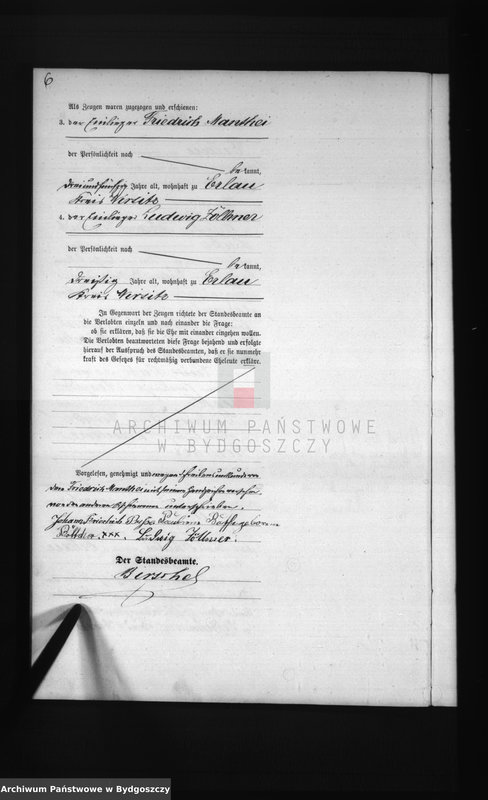 6
Als Zeugen waren zugezogen und erschienen:
3. der Friedrich Manthei
der Persönlichkeit nach
bekannt,
dreiundfünfzig Jahre alt, wohnhaft zu Erlau
Kreis Wirsitz
4. der Ludwig Zöllmer
der Persönlichkeit nach
bekannt,
dreißig Jahre alt, wohnhaft zu Erlau
Kreis Wirsitz
In Gegenwart der Zeugen richtete der Standesbeamte an
die Verlobten einzeln und nach einander die Frage:
ob sie erklären, daß sie die Ehe mit einander eingehen wollen.
Die Verlobten beantworteten diese Frage bejahend und erfolgte
hierauf der Ausspruch des Standesbeamten, daß er sie nunmehr
kraft des Gesetzes für rechtmäßig verbundene Eheleute erkläre.
ARCHIWUM PAŃSTWOWE
W BYDGOSZCZY
Vorgelesen, genehmigt und wegen Schreibensunkunde
dem Friedrich Manthei mit seinem Handzeichen versehen
von den anderen unterschrieben.
Johann Friedrich Pauline geborene
xxx. Ludwig Zöllmer.
Der Standesbeamte.
Archiwum Państwowe w Bydgoszczy